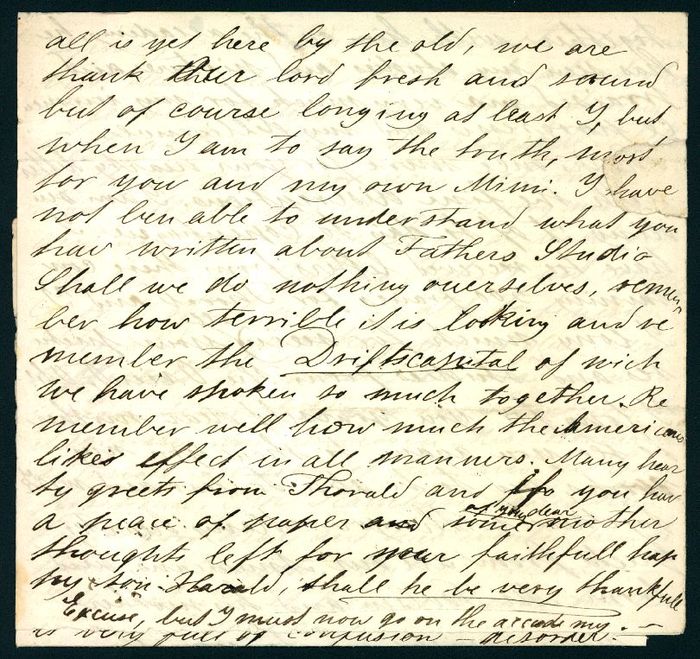 all is yet here by the old, we are
thank our lord fresh and sound
but of course longing at least I, but
when I am to say the truth, most
for you and my own Mimi. I have
not ben able to understand what you
hav written about Fathers Studio
Shall we do nothing ouerselves, remem
ber how terrible it is looking and re
member the Driftscapital of wich
we have spoken so much together. Re
member well how much the Americans
likes effect in all manners. Many hear
ty greets from Thorald and if you hav
a peace of paper and some
as my dear
mother
thoughts left for your faithfull hap
py son Harald, shall he be very thankfull
Excuse, but I must now go on the accademy. —
is very full of confusion — disorder. —